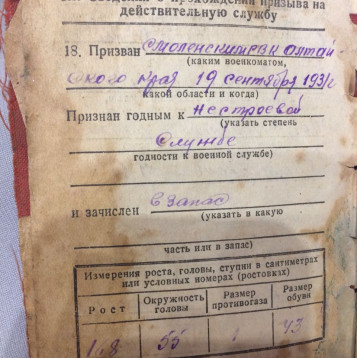 о прохождении призыва на
действительную службу
18. Призван Смоленским РВК Алтай-
(каким военкоматом,
ского края 19 сентября
какой области и когда)
Признан годным к нестроевой
(указать степень
службе
годности к военной службе)
и зачислен в запас
(указать в какую
часть или в запас)
Измерения роста, головы, ступни в сантиметрах
или условных номерах (ростовках)
Рост Окружность головы Размер противогаза Размер обуви
55 1 43